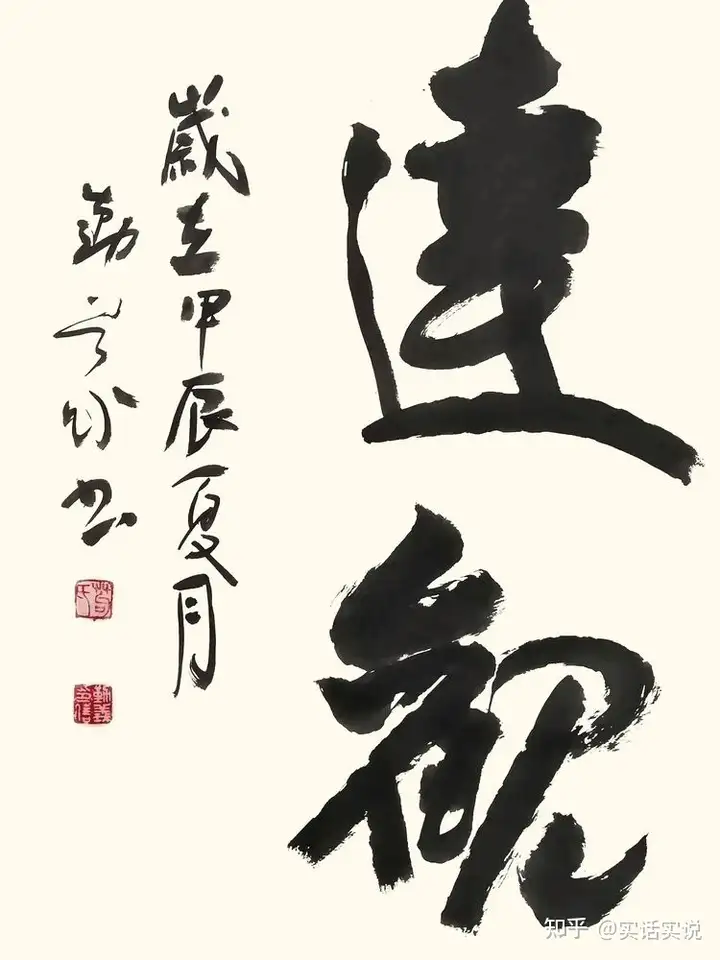 達觀
歲在甲辰夏月
勤 书
知乎 @实话实说